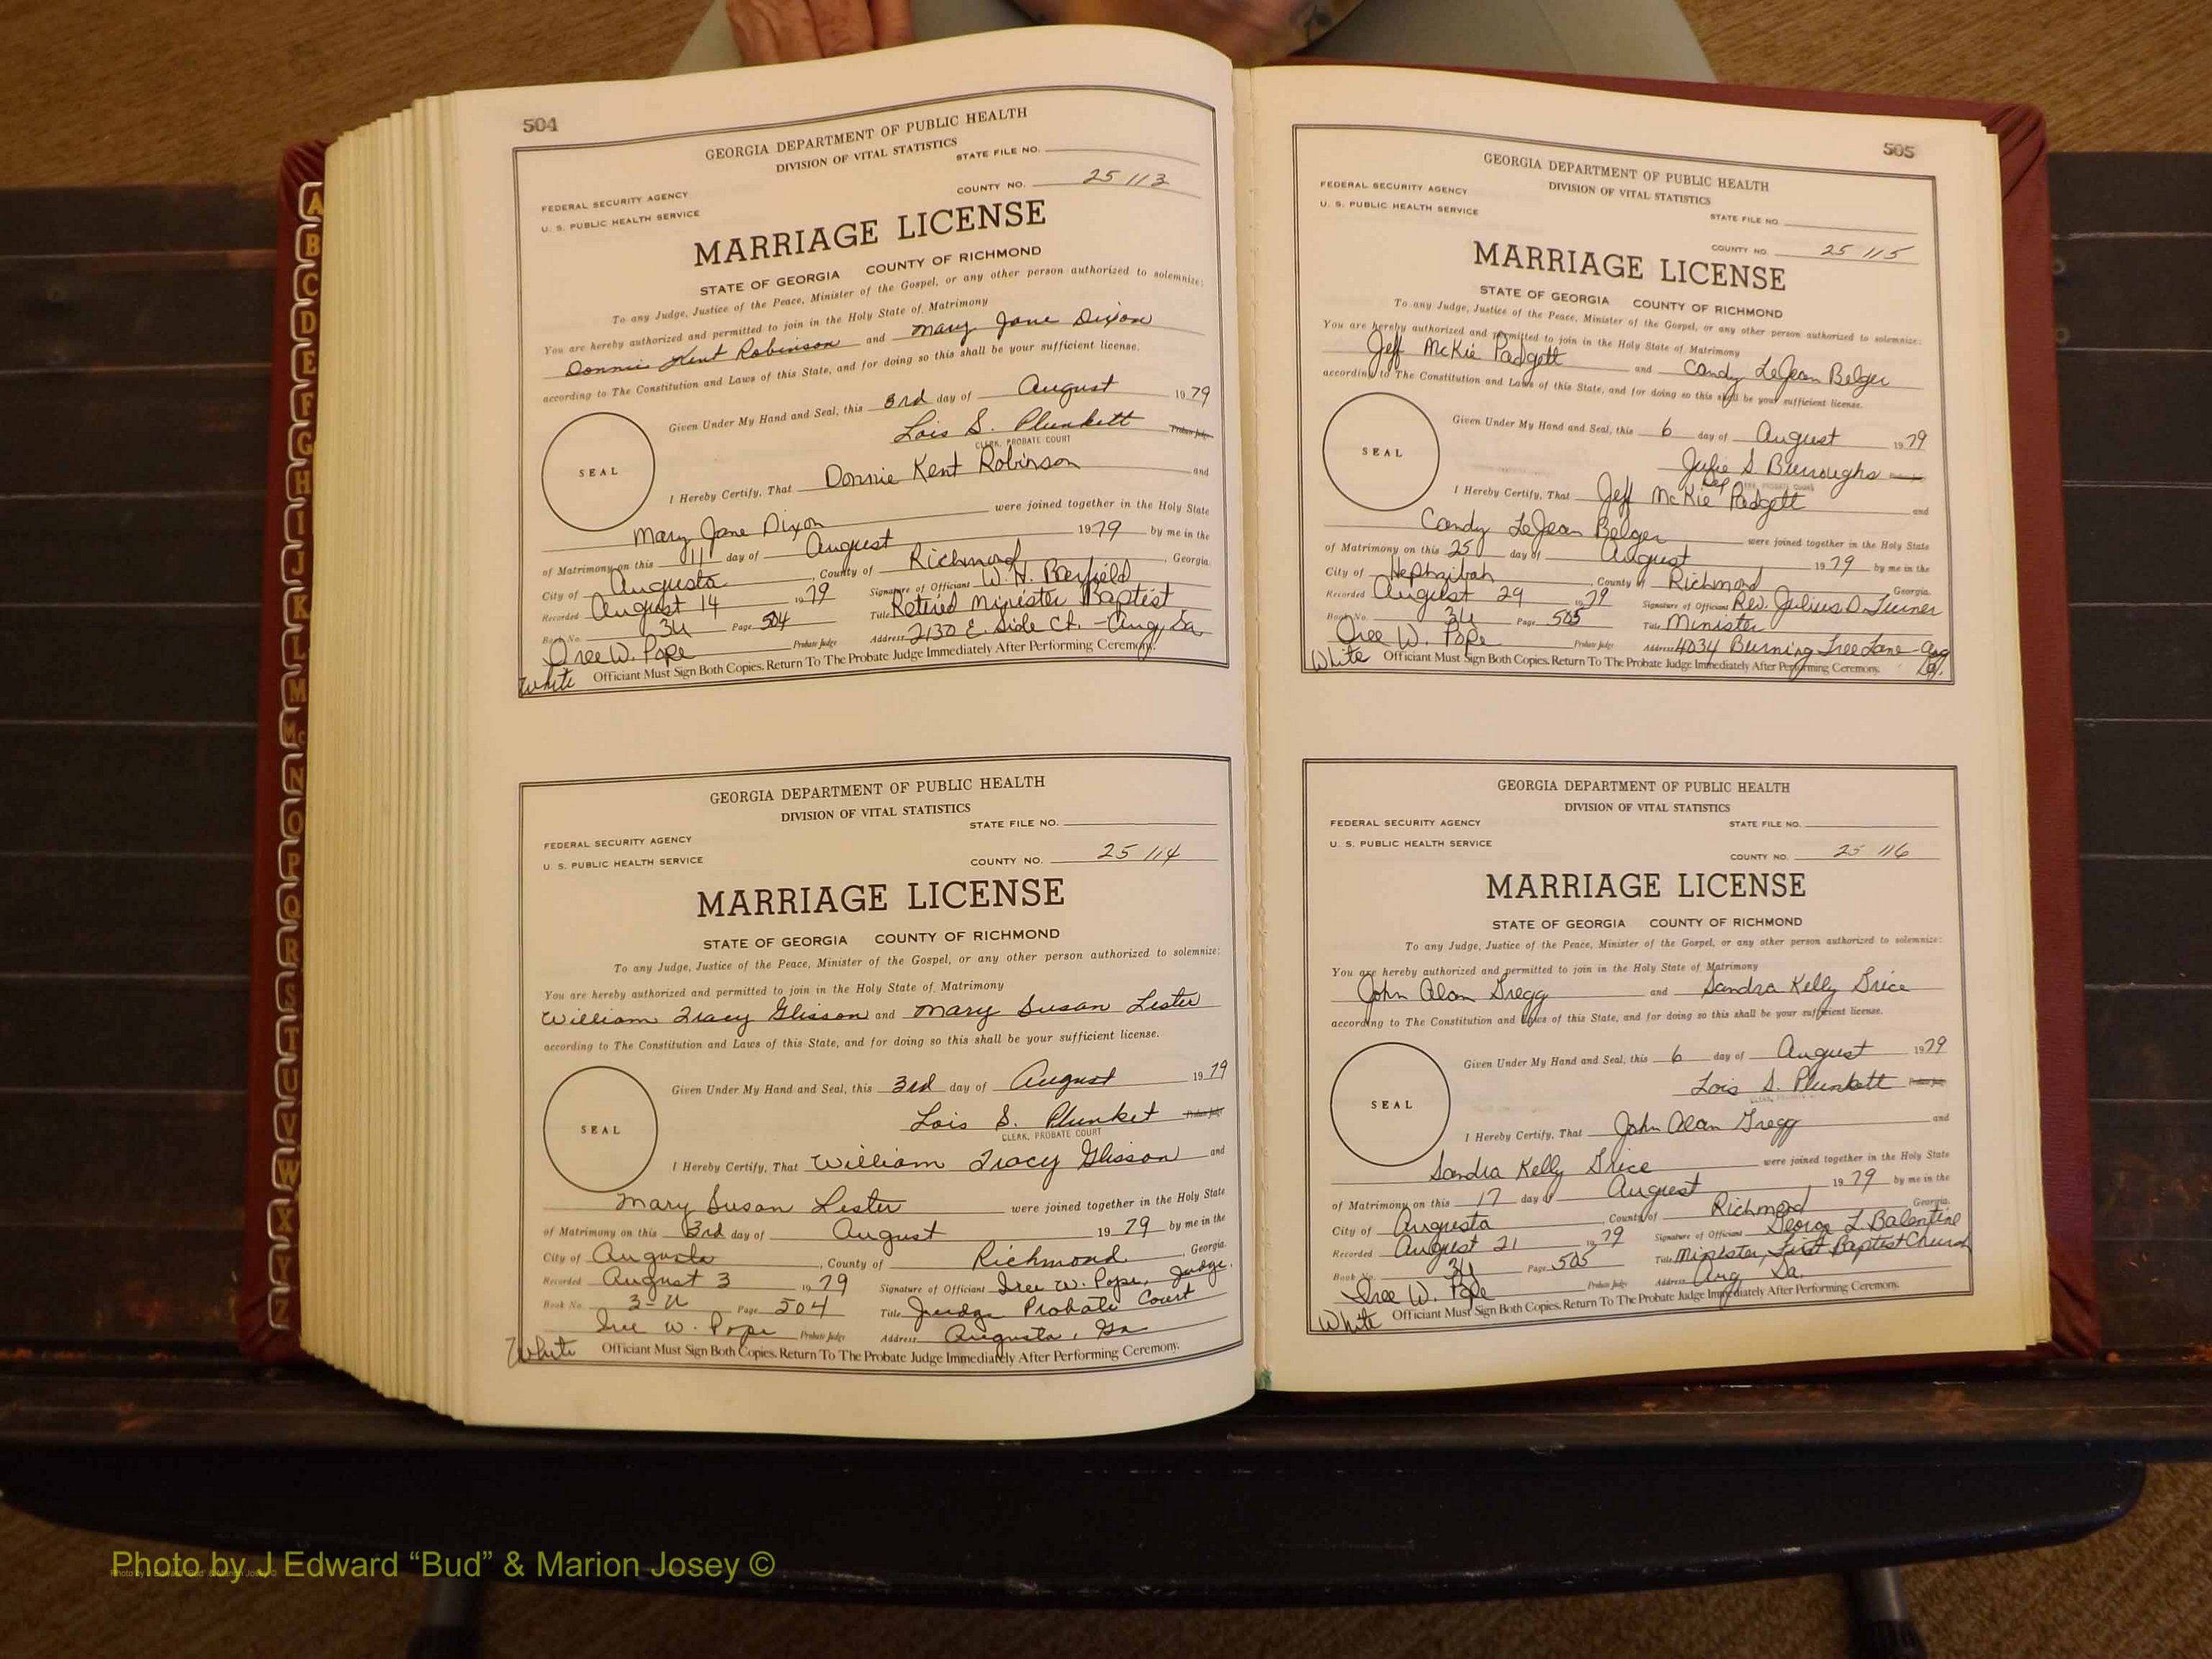 504
GEORGIA DEPARTMENT OF PUBLIC HEALTH
DIVISION OF VITAL STATISTICS
STATE FILE NO.
FEDERAL SECURITY AGENCY
COUNTY NO. 25 113
U. S. PUBLIC HEALTH SERVICE
MARRIAGE LICENSE
STATE OF GEORGIA COUNTY OF RICHMOND
To any Judge, Justice of the Peace, Minister of the Gospel, or any other person authorized to solemnize:
You are hereby authorized and permitted to join in the Holy State of Matrimony
Donnie Kent Robinson and Mary Jane Dixon
according to The Constitution and Laws of this State, and for doing so this shall be your sufficient license.
Given Under My Hand and Seal, this 3rd day of August 1979
Lois S. Plunkett Probate Judge
CLERK, PROBATE COURT
SEAL
I Hereby Certify, That Donnie Kent Robinson and
Mary Jane Dixon were joined together in the Holy State
of Matrimony on this 11 day of August 1979 by me in the
City of Augusta, County of Richmond, Georgia.
Recorded August 14 1979 Signature of Officiant W. H. Barfield
Book No. 3U Page 504 Title Retired Minister Baptist
Oree W. Pope Probate Judge Address 2130 E. Side Ct. - Aug, Ga
White Officiant Must Sign Both Copies. Return To The Probate Judge Immediately After Performing Ceremony.
GEORGIA DEPARTMENT OF PUBLIC HEALTH
DIVISION OF VITAL STATISTICS
STATE FILE NO.
FEDERAL SECURITY AGENCY
U. S. PUBLIC HEALTH SERVICE
COUNTY NO. 25 114
MARRIAGE LICENSE
STATE OF GEORGIA COUNTY OF RICHMOND
To any Judge, Justice of the Peace, Minister of the Gospel, or any other person authorized to solemnize:
You are hereby authorized and permitted to join in the Holy State of Matrimony
William Tracy Glisson and Mary Susan Lester
according to The Constitution and Laws of this State, and for doing so this shall be your sufficient license.
Given Under My Hand and Seal, this 3rd day of August 1979
Lois S. Plunket Probate Judge
CLERK, PROBATE COURT
SEAL
I Hereby Certify, That William Tracy Glisson and
Mary Susan Lester were joined together in the Holy State
of Matrimony on this 3rd day of August 1979 by me in the
City of Augusta, County of Richmond, Georgia.
Recorded August 3 1979 Signature of Officiant Oree W. Pope, Judge
Book No. 3-U Page 504 Title Judge Probate Court
Oree W. Pope Probate Judge Address Augusta, Ga
White Officiant Must Sign Both Copies. Return To The Probate Judge Immediately After Performing Ceremony.
505
GEORGIA DEPARTMENT OF PUBLIC HEALTH
DIVISION OF VITAL STATISTICS
FEDERAL SECURITY AGENCY
U. S. PUBLIC HEALTH SERVICE
STATE FILE NO.
COUNTY NO. 25 115
MARRIAGE LICENSE
STATE OF GEORGIA COUNTY OF RICHMOND
To any Judge, Justice of the Peace, Minister of the Gospel, or any other person authorized to solemnize:
You are hereby authorized and permitted to join in the Holy State of Matrimony
Jeff McKie Padgett and Candy LeJean Belger
according to The Constitution and Laws of this State, and for doing so this shall be your sufficient license.
Given Under My Hand and Seal, this 6 day of August 1979
Julie S. Burroughs
Dep
SEAL
I Hereby Certify, That Jeff McKie Padgett and
Candy LeJean Belger were joined together in the Holy State
of Matrimony on this 25 day of August 1979 by me in the
City of Hephzibah, County of Richmond Georgia.
Recorded August 29 1979 Signature of Officiant Rev. Julius D. Turner
Book No. 3U Page 505 Title Minister
Oree W. Pope Probate Judge Address 4034 Burning Tree Lane - Aug Ga.
White Officiant Must Sign Both Copies. Return To The Probate Judge Immediately After Performing Ceremony.
GEORGIA DEPARTMENT OF PUBLIC HEALTH
DIVISION OF VITAL STATISTICS
FEDERAL SECURITY AGENCY
STATE FILE NO.
U. S. PUBLIC HEALTH SERVICE
COUNTY NO. 25 116
MARRIAGE LICENSE
STATE OF GEORGIA COUNTY OF RICHMOND
To any Judge, Justice of the Peace, Minister of the Gospel, or any other person authorized to solemnize:
You are hereby authorized and permitted to join in the Holy State of Matrimony
John Alan Gregg and Sandra Kelly Grice
according to The Constitution and Laws of this State, and for doing so this shall be your sufficient license.
Given Under My Hand and Seal, this 6 day of August 1979
Lois S. Plunkett Probate Judge
SEAL
I Hereby Certify, That John Alan Gregg and
Sandra Kelly Grice were joined together in the Holy State
of Matrimony on this 17 day of August 1979 by me in the
City of Augusta, County of Richmond Georgia.
Recorded August 21 1979 Signature of Officiant George L. Balentine
Book No. 3U Page 505 Title Minister, First Baptist Church
Oree W. Pope Probate Judge Address Aug, Ga.
White Officiant Must Sign Both Copies. Return To The Probate Judge Immediately After Performing Ceremony.
A
B
C
D
E
F
G
H
I
J
K
L
M
Mc
N
O
P
Q
R
S
T
U
V
W
X
Y
Z
Photo by J Edward “Bud” & Marion Josey ©
Photo by J Edward "Bud" & Marion Josey ©